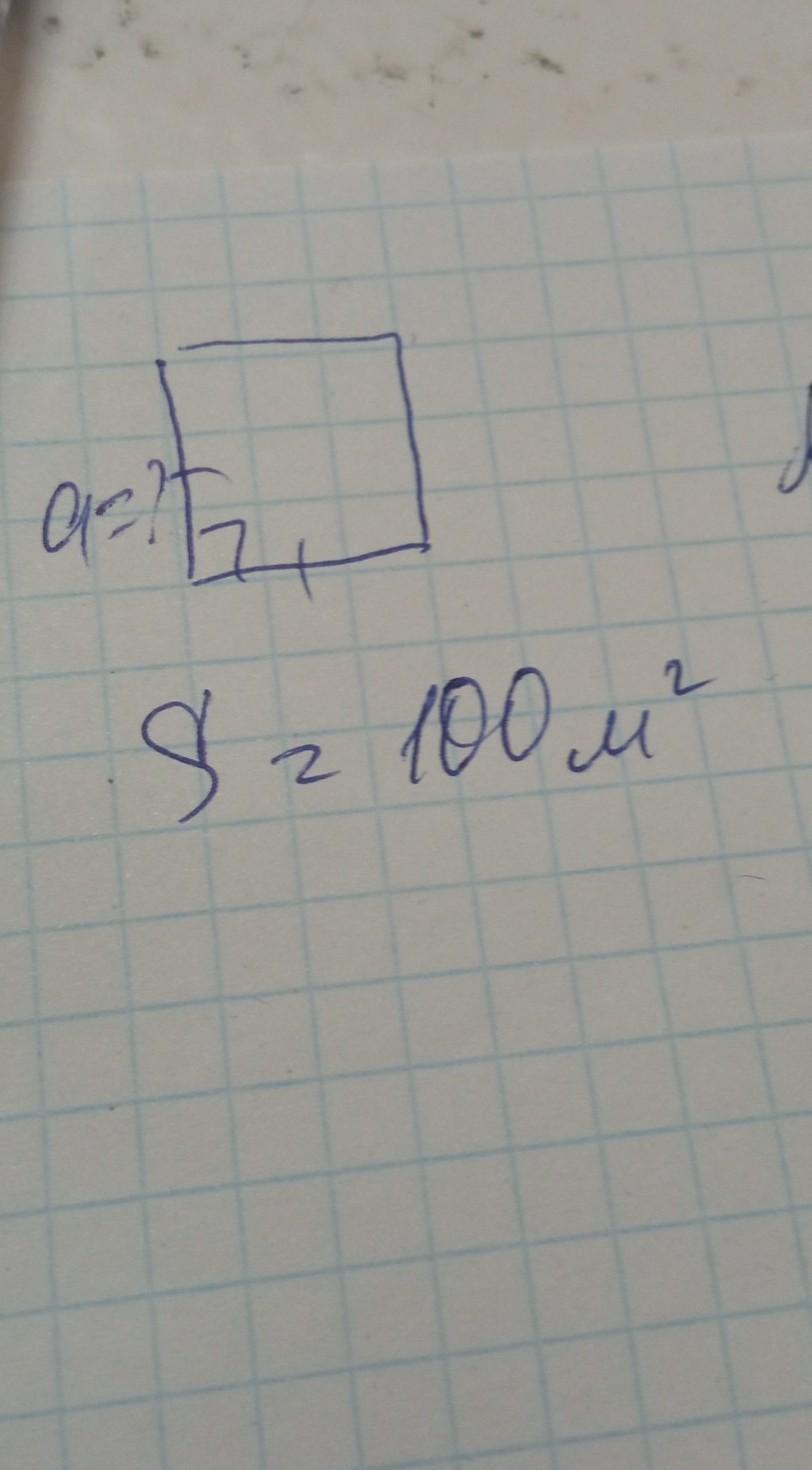 a=?
S = 100 м²